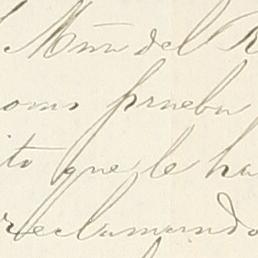 Mma del R
como prueba
ito que le ha
reclamando